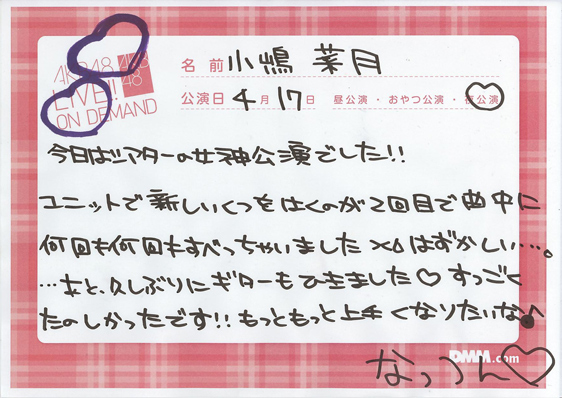 AKB48
LIVE!!
ON DEMAND
AKB
48
名前 小嶋菜月
公演日 4月17日 昼公演・おやつ公演・夜公演
今日はシアターの女神公演でした!!
ユニットで新しいくつをはくのが2回目で曲中に
何回も何回もすべっちゃいました はずかしい…。
…あと、久しぶりにギターもひきました♡ すっごく
たのしかったです!! もっともっと上手くなりたいな♪
なっつん♡
DMM.com